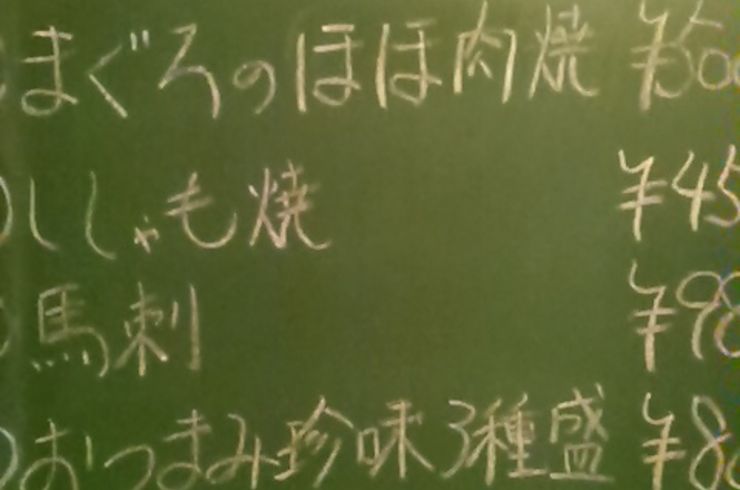 まぐろのほほ肉焼 ¥50
ししゃも焼 ¥45
馬刺 ¥98
おつまみ珍味3種盛 ¥8